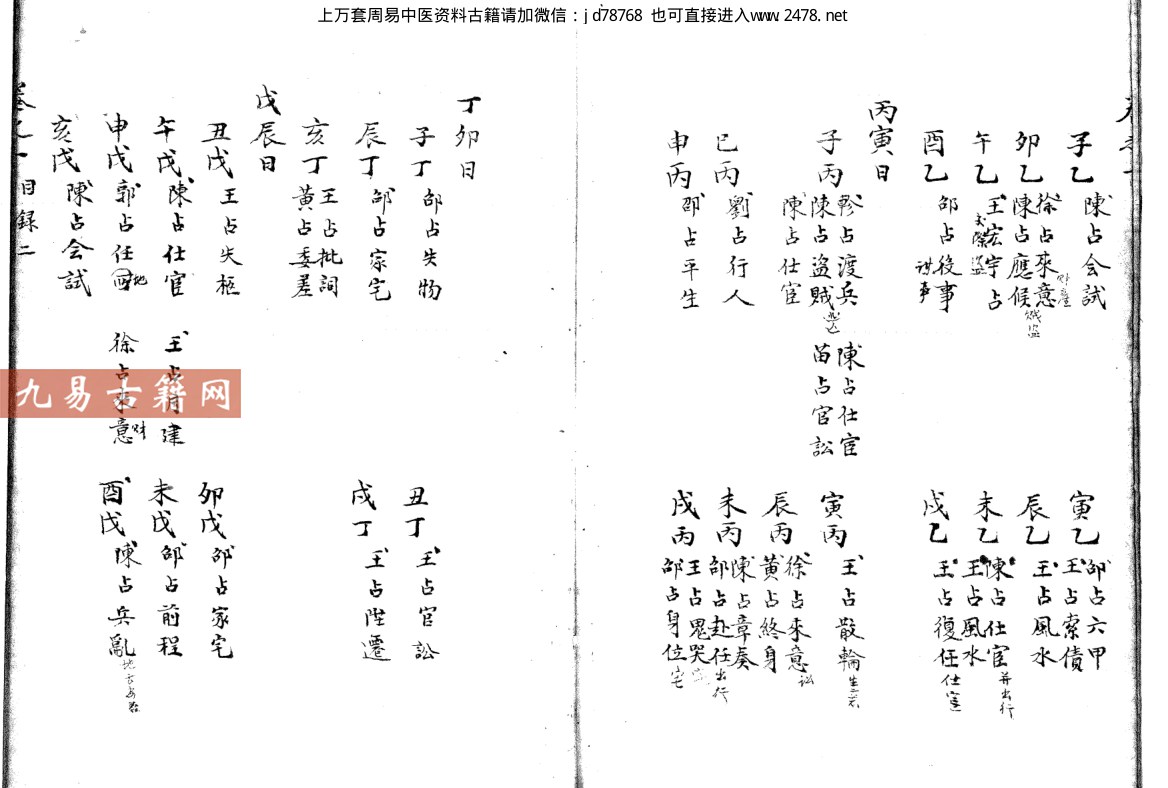 上万套周易中医资料古籍请加微信：jd78768 也可直接进入www.2478.net
子乙 陳占会試
寅乙 邵占六甲
王占索債
卯乙 徐占來意
陳占應候 賊盜
辰乙 王占風水
午乙 王宏宇占
盜
未乙 陳占仕宦 并出行
王占風水
酉乙 邵占後事
戌乙 王占復任 仕宦
丙寅日
子丙 占渡兵
陳占盜賊
陳占仕宦
苗占官訟
寅丙 王占散輪
陳占仕宦
巳丙 劉占行人
辰丙 徐占來意 訟
黃占終身
申丙 邵占平生
未丙 陳占章奏
邵占赴任 出行
戌丙 王占鬼哭
邵占身位 宅
丁卯日
子丁 邵占失物
丑丁 王占官訟
辰丁 邵占家宅
戌丁 王占陞遷
亥丁 王占批詞
黃占委差
戊辰日
丑戊 王占失柩
卯戊 邵占家宅
午戊 陳占仕宦
王占 建
未戊 邵占前程
申戊 郭占任 地
徐占來意
酉戊 陳占兵亂
亥戊 陳占会試
目録二
九易古籍网